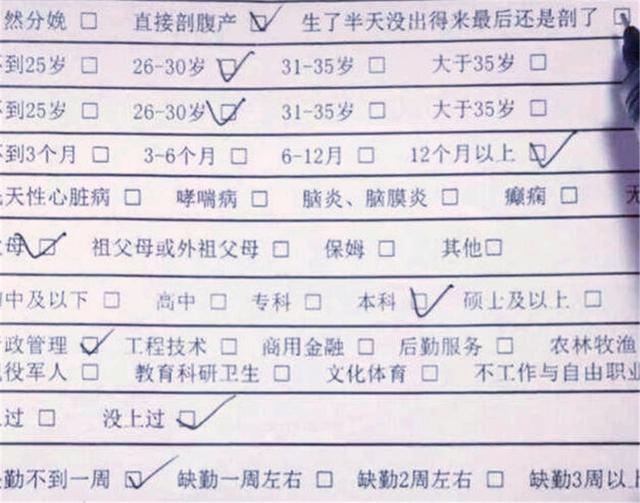 然分娩 □ 直接剖腹产 ☑ 生了半天没出得来最后还是剖了 □
不到25岁 □ 26-30岁 ☑ 31-35岁 □ 大于35岁 □
不到25岁 □ 26-30岁 ☑ 31-35岁 □ 大于35岁 □
不到3个月 □ 3-6个月 □ 6-12月 □ 12个月以上 ☑
天性心脏病 □ 哮喘病 □ 脑炎、脑膜炎 □ 癫痫 □ 无
母 ☑ 祖父母或外祖父母 □ 保姆 □ 其他□
中及以下 □ 高中 □ 专科 □ 本科 ☑ 硕士及以上 □
政管理 ☑ 工程技术 □ 商用金融 □ 后勤服务 □ 农林牧渔
役军人 □ 教育科研卫生 □ 文化体育 □ 不工作与自由职业
过 □ 没上过 ☑
勤不到一周 ☑ 缺勤一周左右 □ 缺勤2周左右 □ 缺勤3周以